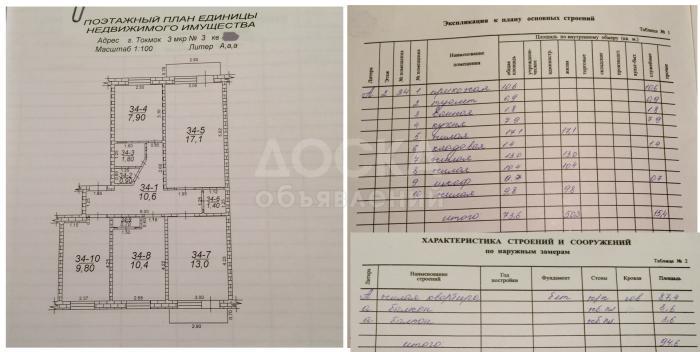 ПОЭТАЖНЫЙ ПЛАН ЕДИНИЦЫ
НЕДВИЖИМОГО ИМУЩЕСТВА
Адрес г. Токмок 3 мкр № 3 кв
Масштаб 1:100 Литер А,а,а
34-4
7,90
34-5
17,1
34-3
1,80
34-2
0,90
34-1
10,6
34-6
1,40
34-10
9,80
34-8
10,4
34-7
13,0
DOSKA
объявлений
Экспликация к плану основных строений
Таблица № 1
Площадь по внутреннему обмеру (кв. м.)
Литера
Этаж
№ помещения
№ помещения
Наименование помещения
общая площадь
жилая
торговые
складские
служебные
прочие
А 2 34 1 прихожая 10,6 10,6
2 туалет 0,9 0,9
3 ванная 1,8 1,8
4 кухня 7,9 7,9
5 жилая 17,1 17,1
6 кладовая 1,4 1,4
7 жилая 13,0 13,0
8 жилая 10,4 10,4
9 шкаф 0,7 0,7
10 жилая 9,8 9,8
итого 73,6 50,3
ХАРАКТЕРИСТИКА СТРОЕНИЙ И СООРУЖЕНИЙ
по наружным замерам
Таблица № 2
Литера
Наименование строений
Год постройки
Фундамент
Стены
Кровля
Площадь
А жилая квартира бет 87,4
а балкон 3,6
а балкон 3,6
итого 94,6